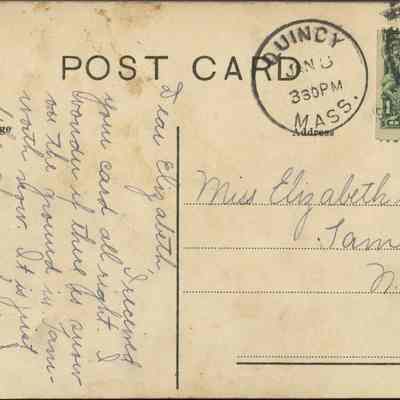 POST CARD
QUINCY
JAN
330PM
MASS.
1
ge
Address
Dear Elizabeth
I received
your card all right. I
wonder if there is snow
on the ground in Tam-
worth now. It is just
Miss Elizabeth
Tam
N.